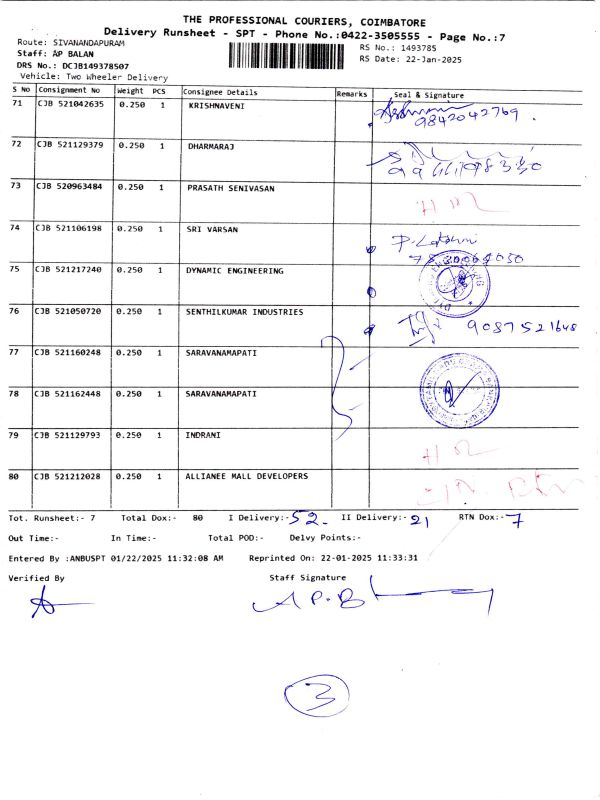 THE PROFESSIONAL COURIERS, COIMBATORE
Delivery Runsheet - SPT - Phone No.:0422-3505555 - Page No.:7
Route: SIVANANDAPURAM
RS No.: 1493785
Staff: AP BALAN
RS Date: 22-Jan-2025
DRS No.: DCJB149378507
Vehicle: Two Wheeler Delivery
S No Consignment No Weight PCS Consignee Details Remarks Seal & Signature
71 CJB 521042635 0.250 1 KRISHNAVENI
9842042769
72 CJB 521129379 0.250 1 DHARMARAJ
73 CJB 520963484 0.250 1 PRASATH SENIVASAN
74 CJB 521106198 0.250 1 SRI VARSAN
75 CJB 521217240 0.250 1 DYNAMIC ENGINEERING
76 CJB 521050720 0.250 1 SENTHILKUMAR INDUSTRIES
9087521648
77 CJB 521160248 0.250 1 SARAVANAMAPATI
78 CJB 521162448 0.250 1 SARAVANAMAPATI
79 CJB 521129793 0.250 1 INDRANI
80 CJB 521212028 0.250 1 ALLIANEE MALL DEVELOPERS
Tot. Runsheet:- 7 Total Dox:- 80 I Delivery:- 52. II Delivery:- 21 RTN Dox:- 7
Out Time:- In Time:- Total POD:- Delvy Points:-
Entered By :ANBUSPT 01/22/2025 11:32:08 AM Reprinted On: 22-01-2025 11:33:31
Verified By Staff Signature
A P.B
3